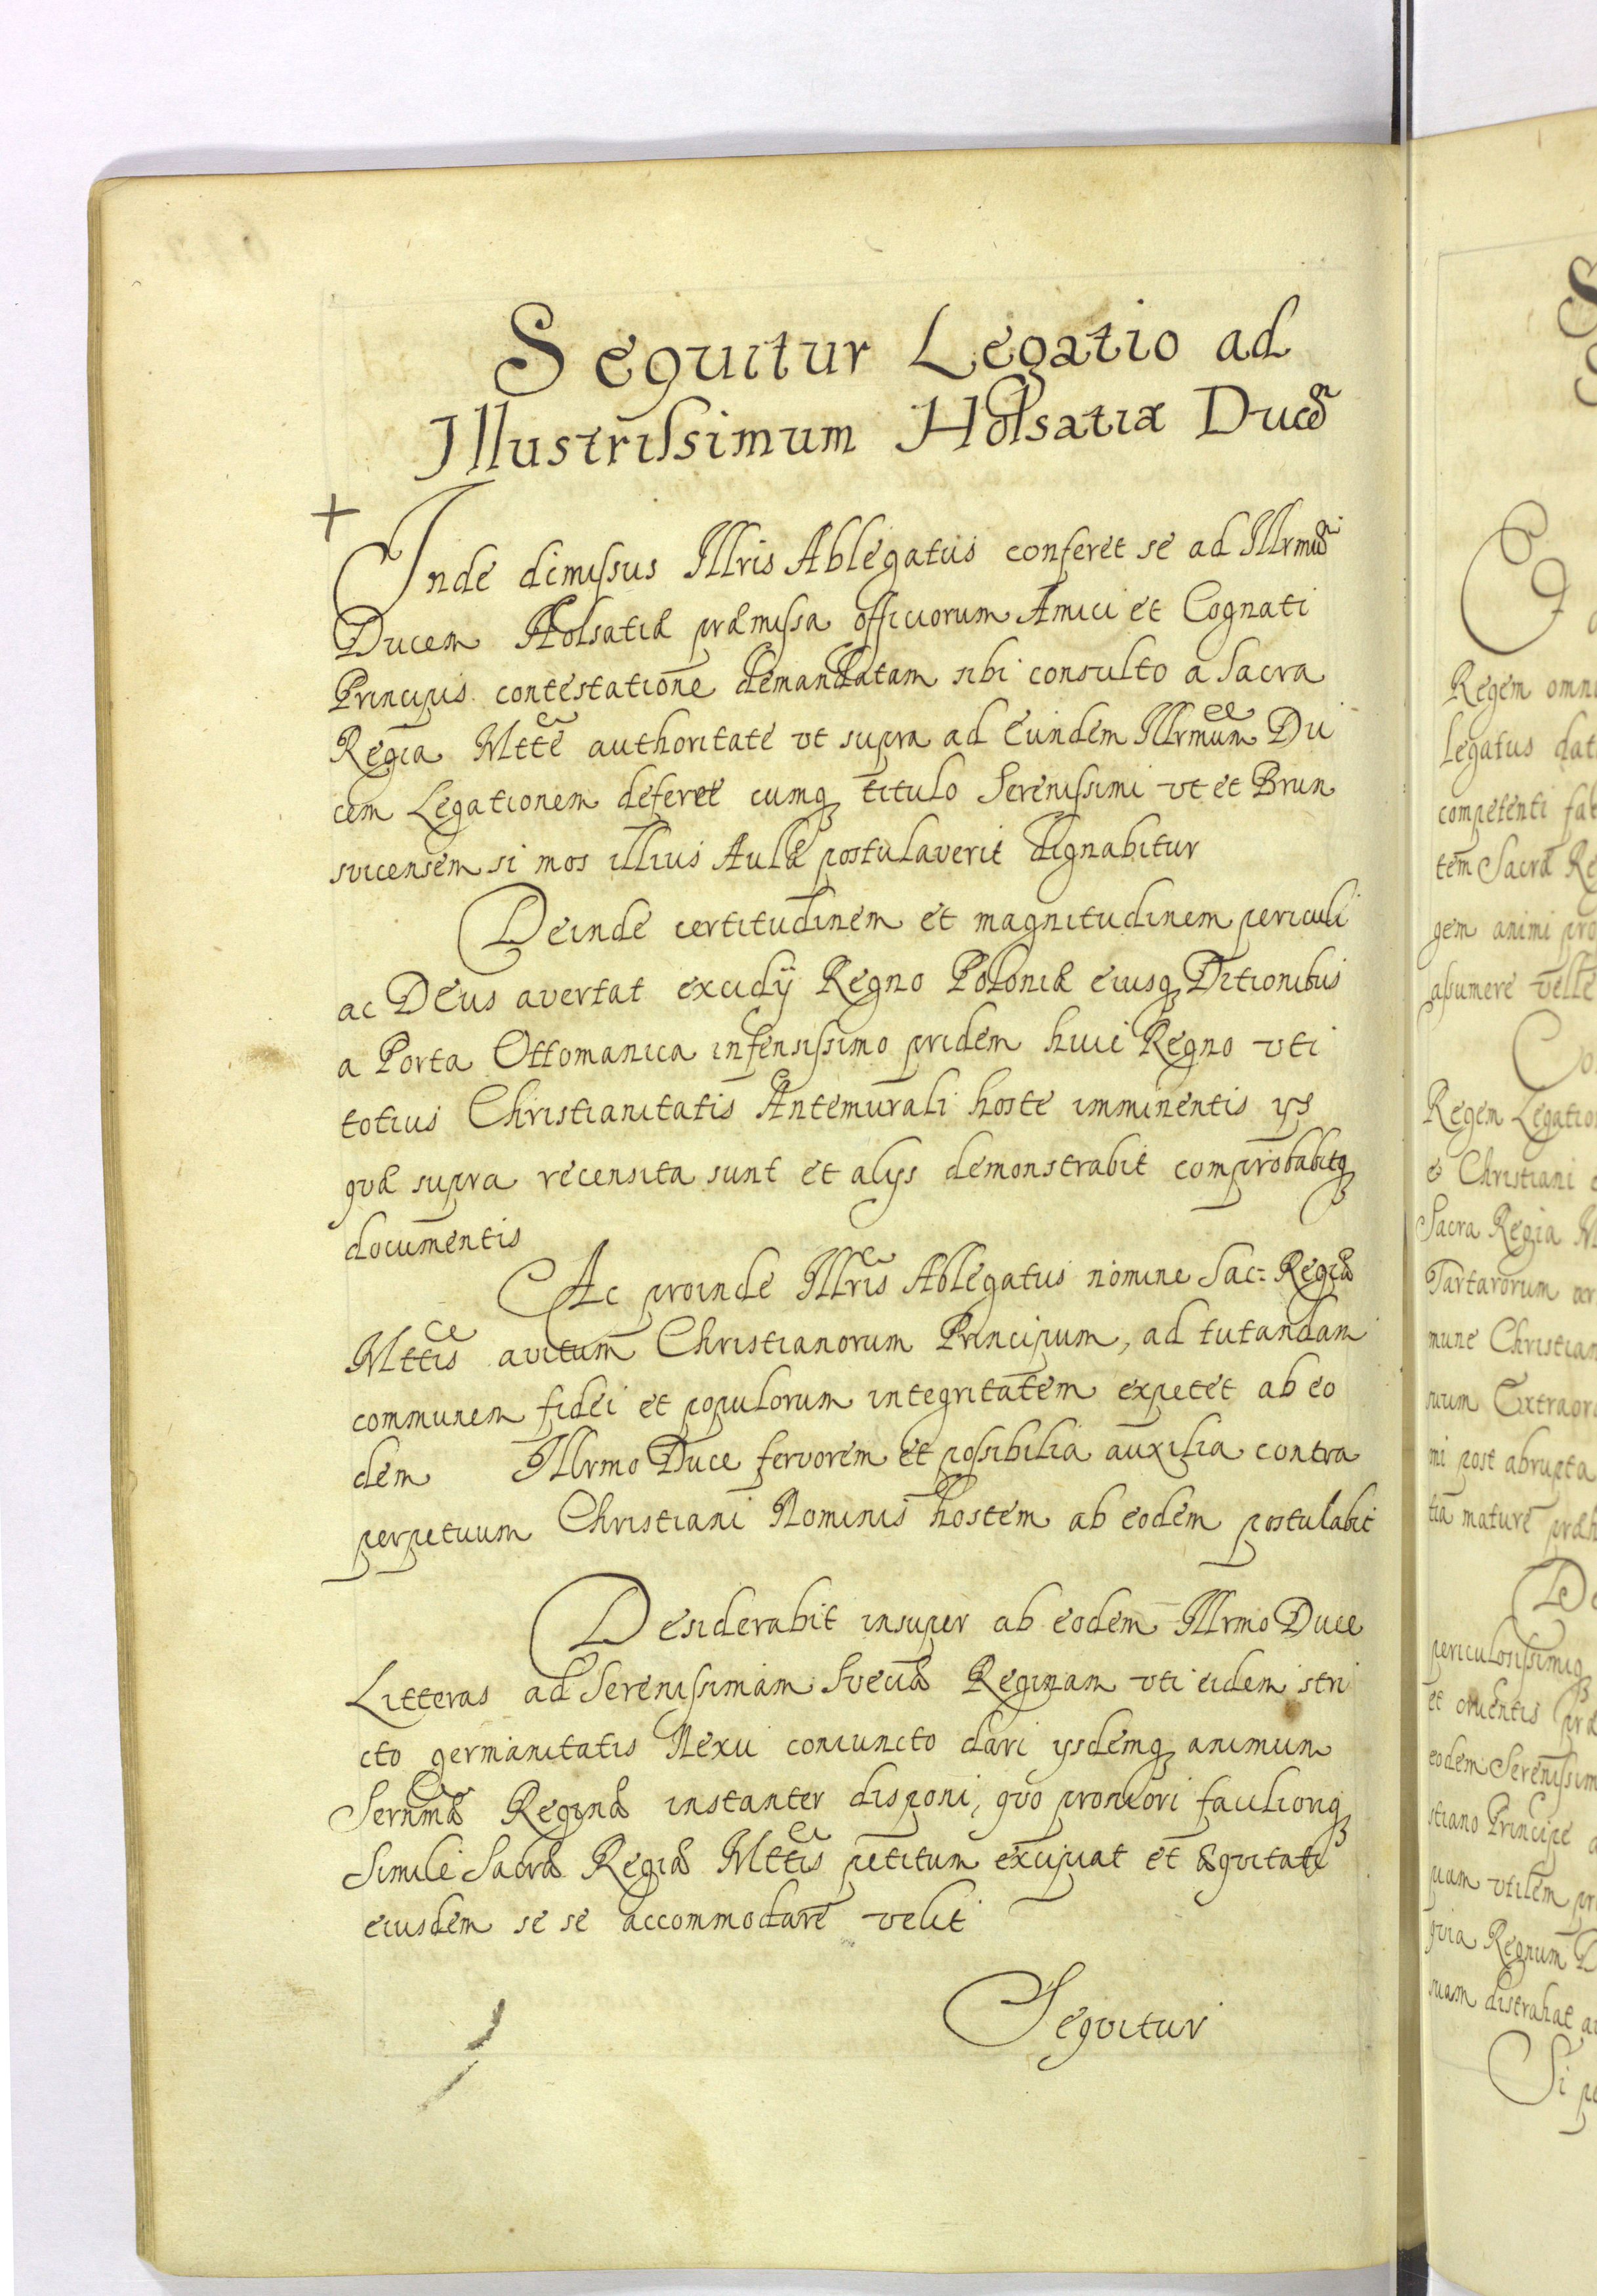 Sequitur Legatio ad
Illustrissimum Holsatiæ Ducem
Inde dimissus Illris Ablegatus conferet se ad Illrmum
Ducem Holsatiæ præmissa officiorum Amici et Cognati
Principis contestatione demandatam sibi consulto a Sacra
Regia Mtte authoritate ut supra ad Eundem Illrmum Du
cem Legationem deferet cumq titulo Serenissimi ut et Brun
svicensem si mos illius Aulæ postulaverit dignabitur
Deinde certitudinem et magnitudinem periculi
ac Deus avertat excidÿ Regno Poloniæ eiusq Ditionibus
a Porta Ottomanica infensissimo pridem huic Regno uti
totius Christianitatis Antemurali hoste imminentis ys
quæ supra recensita sunt et alys demonstrabit comprobabitq
documentis
Ac proinde Illris Ablegatus nomine Sac: Regiæ
Mttis avitum Christianorum Principum, ad tutandam
communem fidei et populorum integritatem expetet ab eo
dem Illrmo Duce fervorem et possibilia auxilia contra
perpetuum Christiani Nominis hostem ab eodem postulabit
Desiderabit insuper ab eodem Illrmo Duce
Litteras ad Serenissimam Sveciæ Reginam uti eidem stri
cto germanitatis Nexu coniuncto dari ysdemq animum
Sernmæ Reginæ instanter disponi, quo proniori faciliorq
Simile Sacræ Regiæ Mttis petitum excipiat et æquitati
eiusdem se se accommodare velit
Sequitur
Regem omni
Legatus dat
competenti fa
tem Sacræ Re
gem animi pro
assumere velle
Co
Regem Legatio
e Christiani
Sacra Regia M
Tartarorum
mune Christian
suum Extraor
mi post abrupta
tia mature præ
De
periculosissimiq
et cruentis præ
eodem Serenissim
stiano Principe
quam utilem pr
quia Regnum D
suam distrahat a
Si p